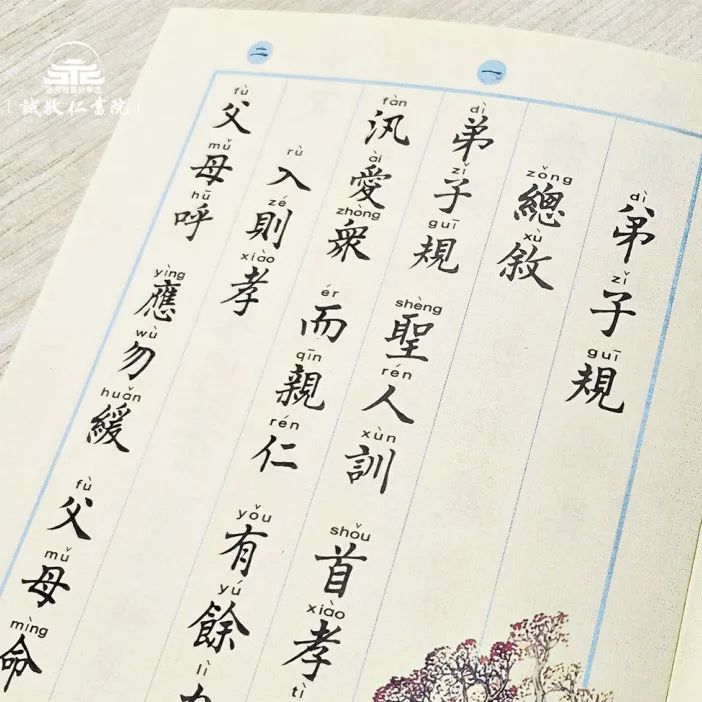 誠敬仁書院
一
dì zǐ guī
弟子規
zǒng xù
總敘
dì zǐ guī shèng rén xùn shǒu xiào tì
弟子規 聖人訓 首孝
fàn ài zhòng ér qīn rén yǒu yú lì
汎愛眾 而親仁 有餘
二
rù zé xiào
入則孝
fù mǔ hū yìng wù huǎn fù mǔ mìng
父母呼 應勿緩 父母命